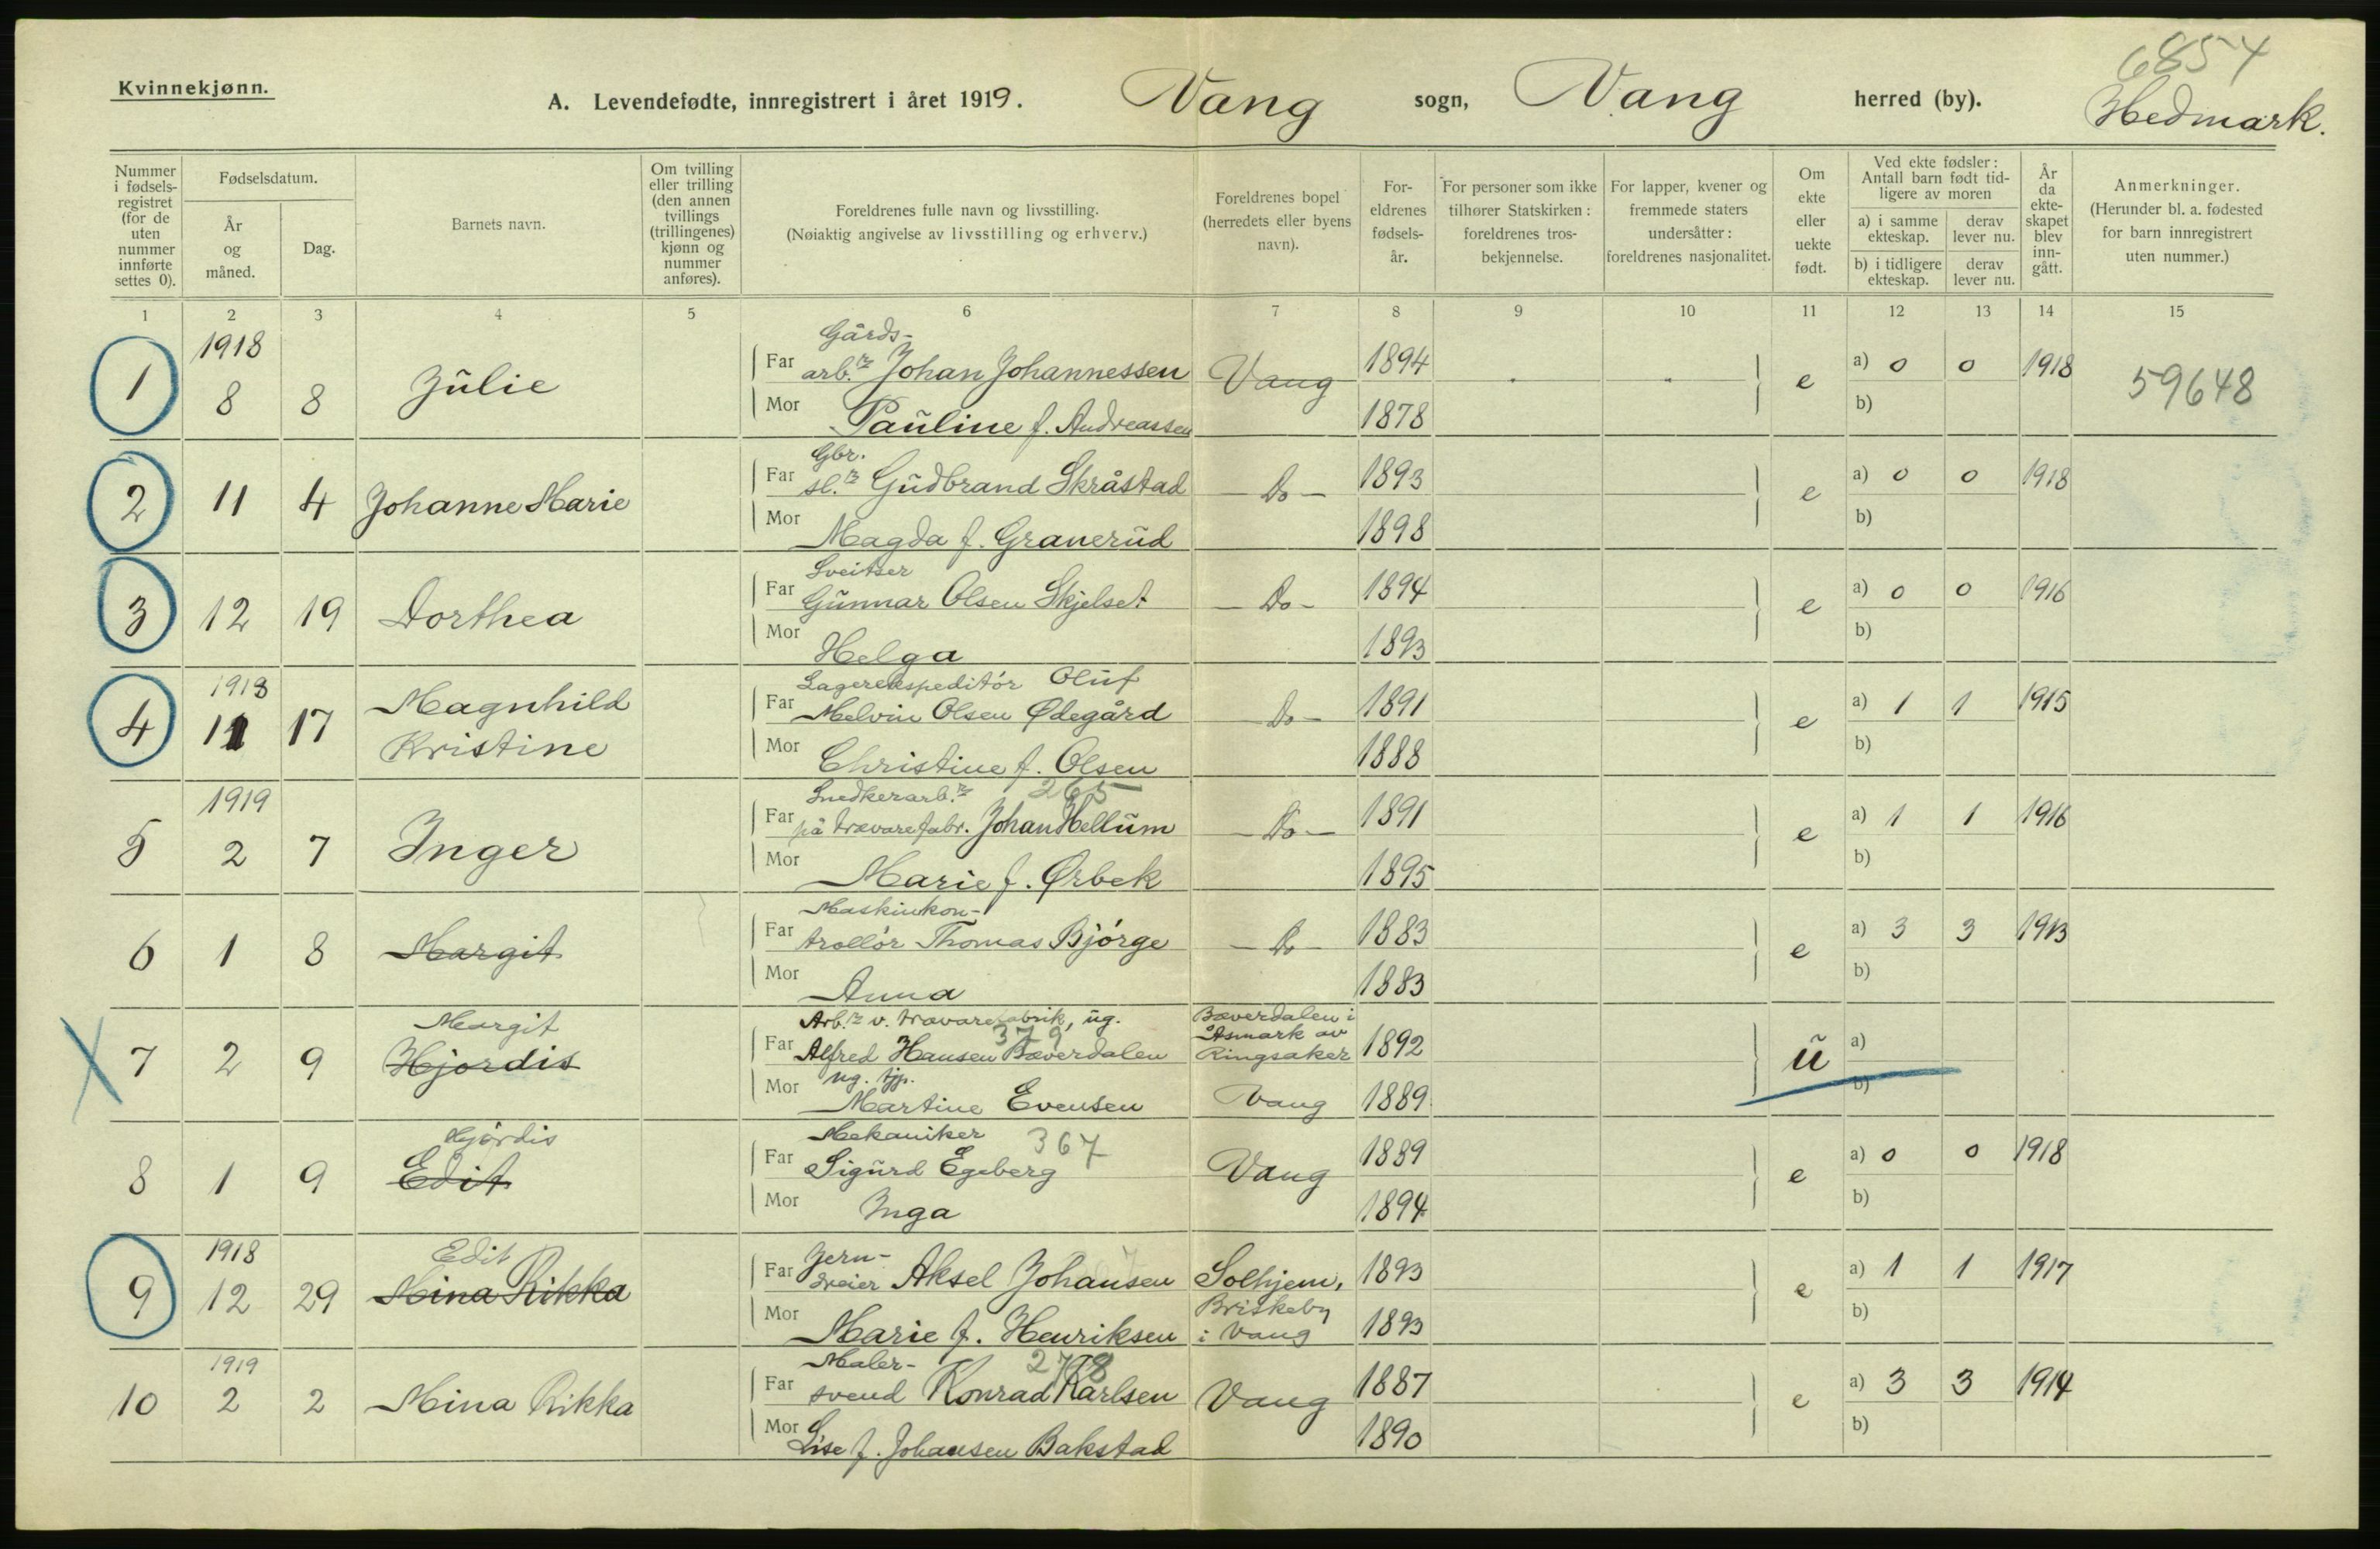 6854
Kvinnekjønn.
A. Levendefødte, innregistrert i året 1919. Vang sogn, Vang herred (by). Hedmark.
Nummer i fødsels-registret (for de uten nummer innførte settes 0).
Fødselsdatum.
År og måned.
Dag.
Barnets navn.
Om tvilling eller trilling (den annen tvillings (trillingenes) kjønn og nummer anføres).
Foreldrenes fulle navn og livsstilling.
(Nøiaktig angivelse av livsstilling og erhverv.)
Foreldrenes bopel (herredets eller byens navn).
For-eldrenes fødsels-år.
For personer som ikke tilhører Statskirken: foreldrenes tros-bekjennelse.
For lapper, kvener og fremmede staters undersåtter: foreldrenes nasjonalitet.
Om ekte eller uekte født.
Ved ekte fødsler: Antall barn født tid-ligere av moren
a) i samme ekteskap. derav lever nu.
b) i tidligere ekteskap. derav lever nu.
År da ekte-skapet blev inn-gått.
Anmerkninger.
(Herunder bl. a. fødested for barn innregistrert uten nummer.)
1 2 3 4 5 6 7 8 9 10 11 12 13 14 15
1918 Gårds-
1 8 8 Julie Far arb.r Johan Johannessen Vang 1894 e a) 0 0 1918 59648
Mor Pauline f. Andreassen 1878 b)
Gbr.
2 11 4 Johanne Marie Far sl.r Gudbrand Skråstad - Do - 1893 e a) 0 0 1918
Mor Magda f. Granerud 1898 b)
Sveitser
3 12 19 Dorthea Far Gunnar Olsen Skjelset - Do - 1894 e a) 0 0 1916
Mor Helga 1893 b)
1918 Lagerekspeditør Oluf
4 11 17 Magnhild Kristine Far Melvin Olsen Ødegård - Do - 1891 e a) 1 1 1915
Mor Christine f. Olsen 1888 b)
1919 Snedkerarb.r 265
5 2 7 Inger Far på trævarefabr. Johan Hellum - Do - 1891 e a) 1 1 1916
Mor Marie f. Ørbek 1895 b)
Maskinkon-
6 1 8 Margit Far trollør Thomas Bjørge - Do - 1883 e a) 3 3 1913
Mor Anna 1883 b)
Margit Arb.r v. trævarefabrik, ug. 379 Bæverdalen i Åsmark av Ringsaker
7 2 9 Hjordis Far Alfred Hansen Bæverdalen 1892 u a)
Mor ug. tjp. Martine Evensen Vang 1889 b)
Hjørdis Mekaniker 367
8 1 9 Edit Far Sigurd Egeberg Vang 1889 e a) 0 0 1918
Mor Inga 1894 b)
1918 Edit Jern-
9 12 29 Mina Rikka Far dreier Aksel Johansen Solhjem, Briskeby i Vang 1893 e a) 1 1 1917
Mor Marie f. Henriksen 1893 b)
1919 Maler- 2798
10 2 2 Mina Rikka Far svend Konrad Karlsen Vang 1887 e a) 3 3 1914
Mor Lise f. Johansen Bakstad 1890 b)